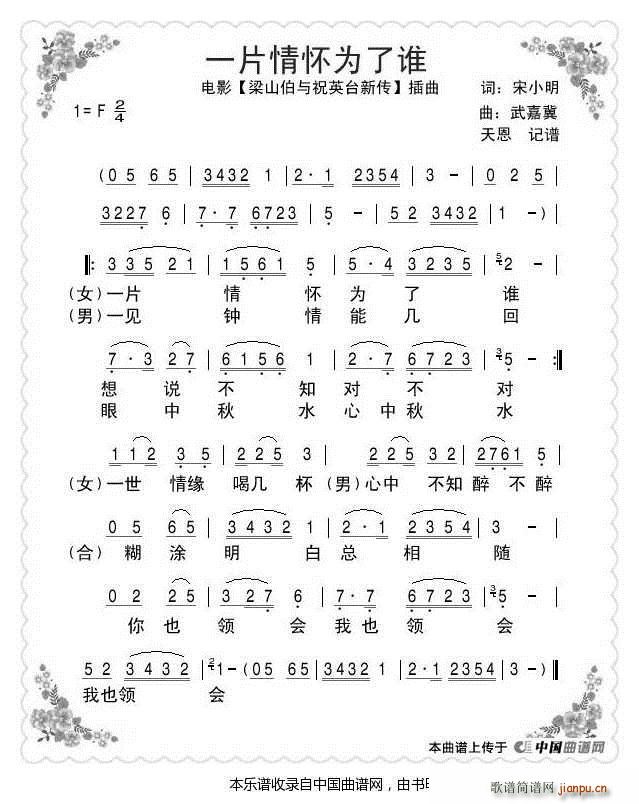 一片情怀为了谁
电影【梁山伯与祝英台新传】插曲
词：宋小明
1=F 2/4
曲：武嘉冀
天恩 记谱
(0 5 6 5 | 3432 1 | 2· 1 2354 | 3 - | 0 2 5
3227 6 | 7· 7 6723 | 5 - | 5 2 3432 | 1 -)
‖: 3 3 5 2 1 | 1 5 6 1 5 | 5· 4 3 2 3 5 | 5 2 -
(女)一片 情 怀 为 了 谁
(男)一见 钟 情 能 几 回
7· 3 2 7 | 6 1 5 6 1 | 2· 7 6 7 2 3 | 3 5 - :‖
想 说 不 知 对 不 对
眼 中 秋 水 心 中 秋 水
1 1 2 3 5 | 2 2 5 3 | 2 2 5 3 2 | 2761 5
(女)一世 情缘 喝几 杯 (男)心中 不知 醉 不 醉
0 5 6 5 | 3 4 3 2 1 | 2· 1 2 3 5 4 | 3 -
(合) 糊 涂 明 白 总 相 随
0 2 2 5 | 3 2 7 6 | 7· 7 6 7 2 3 | 3 5 -
你 也 领 会 我 也 领 会
5 2 3 4 3 2 | 2 1 - (0 5 6 5 | 3432 1 | 2· 1 2354 | 3 -) ‖
我也 领 会
本曲谱上传于 中国曲谱网
本乐谱收录自中国曲谱网，由书
歌谱简谱网
jianpu.cn